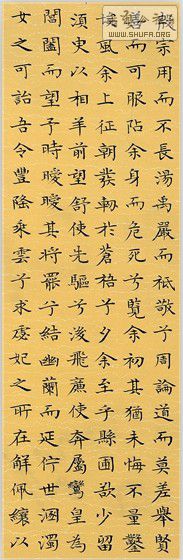 WWW.SHUFA.ORG
宗用而不長湯禹嚴而祗敬兮周論道而莫差舉賢
而可服阽余身而危死兮覽余初其猶未悔不量鑿
風余上征朝發軔於蒼梧兮夕余至乎縣圃欲少留
須臾以相羊前望舒使先驅兮後飛廉使奔屬鸞皇為
閶闔而望予時曖曖其將罷兮結幽蘭而延佇世溷濁
女之可詒吾令豐隆乘雲兮求虙妃之所在解佩纕以